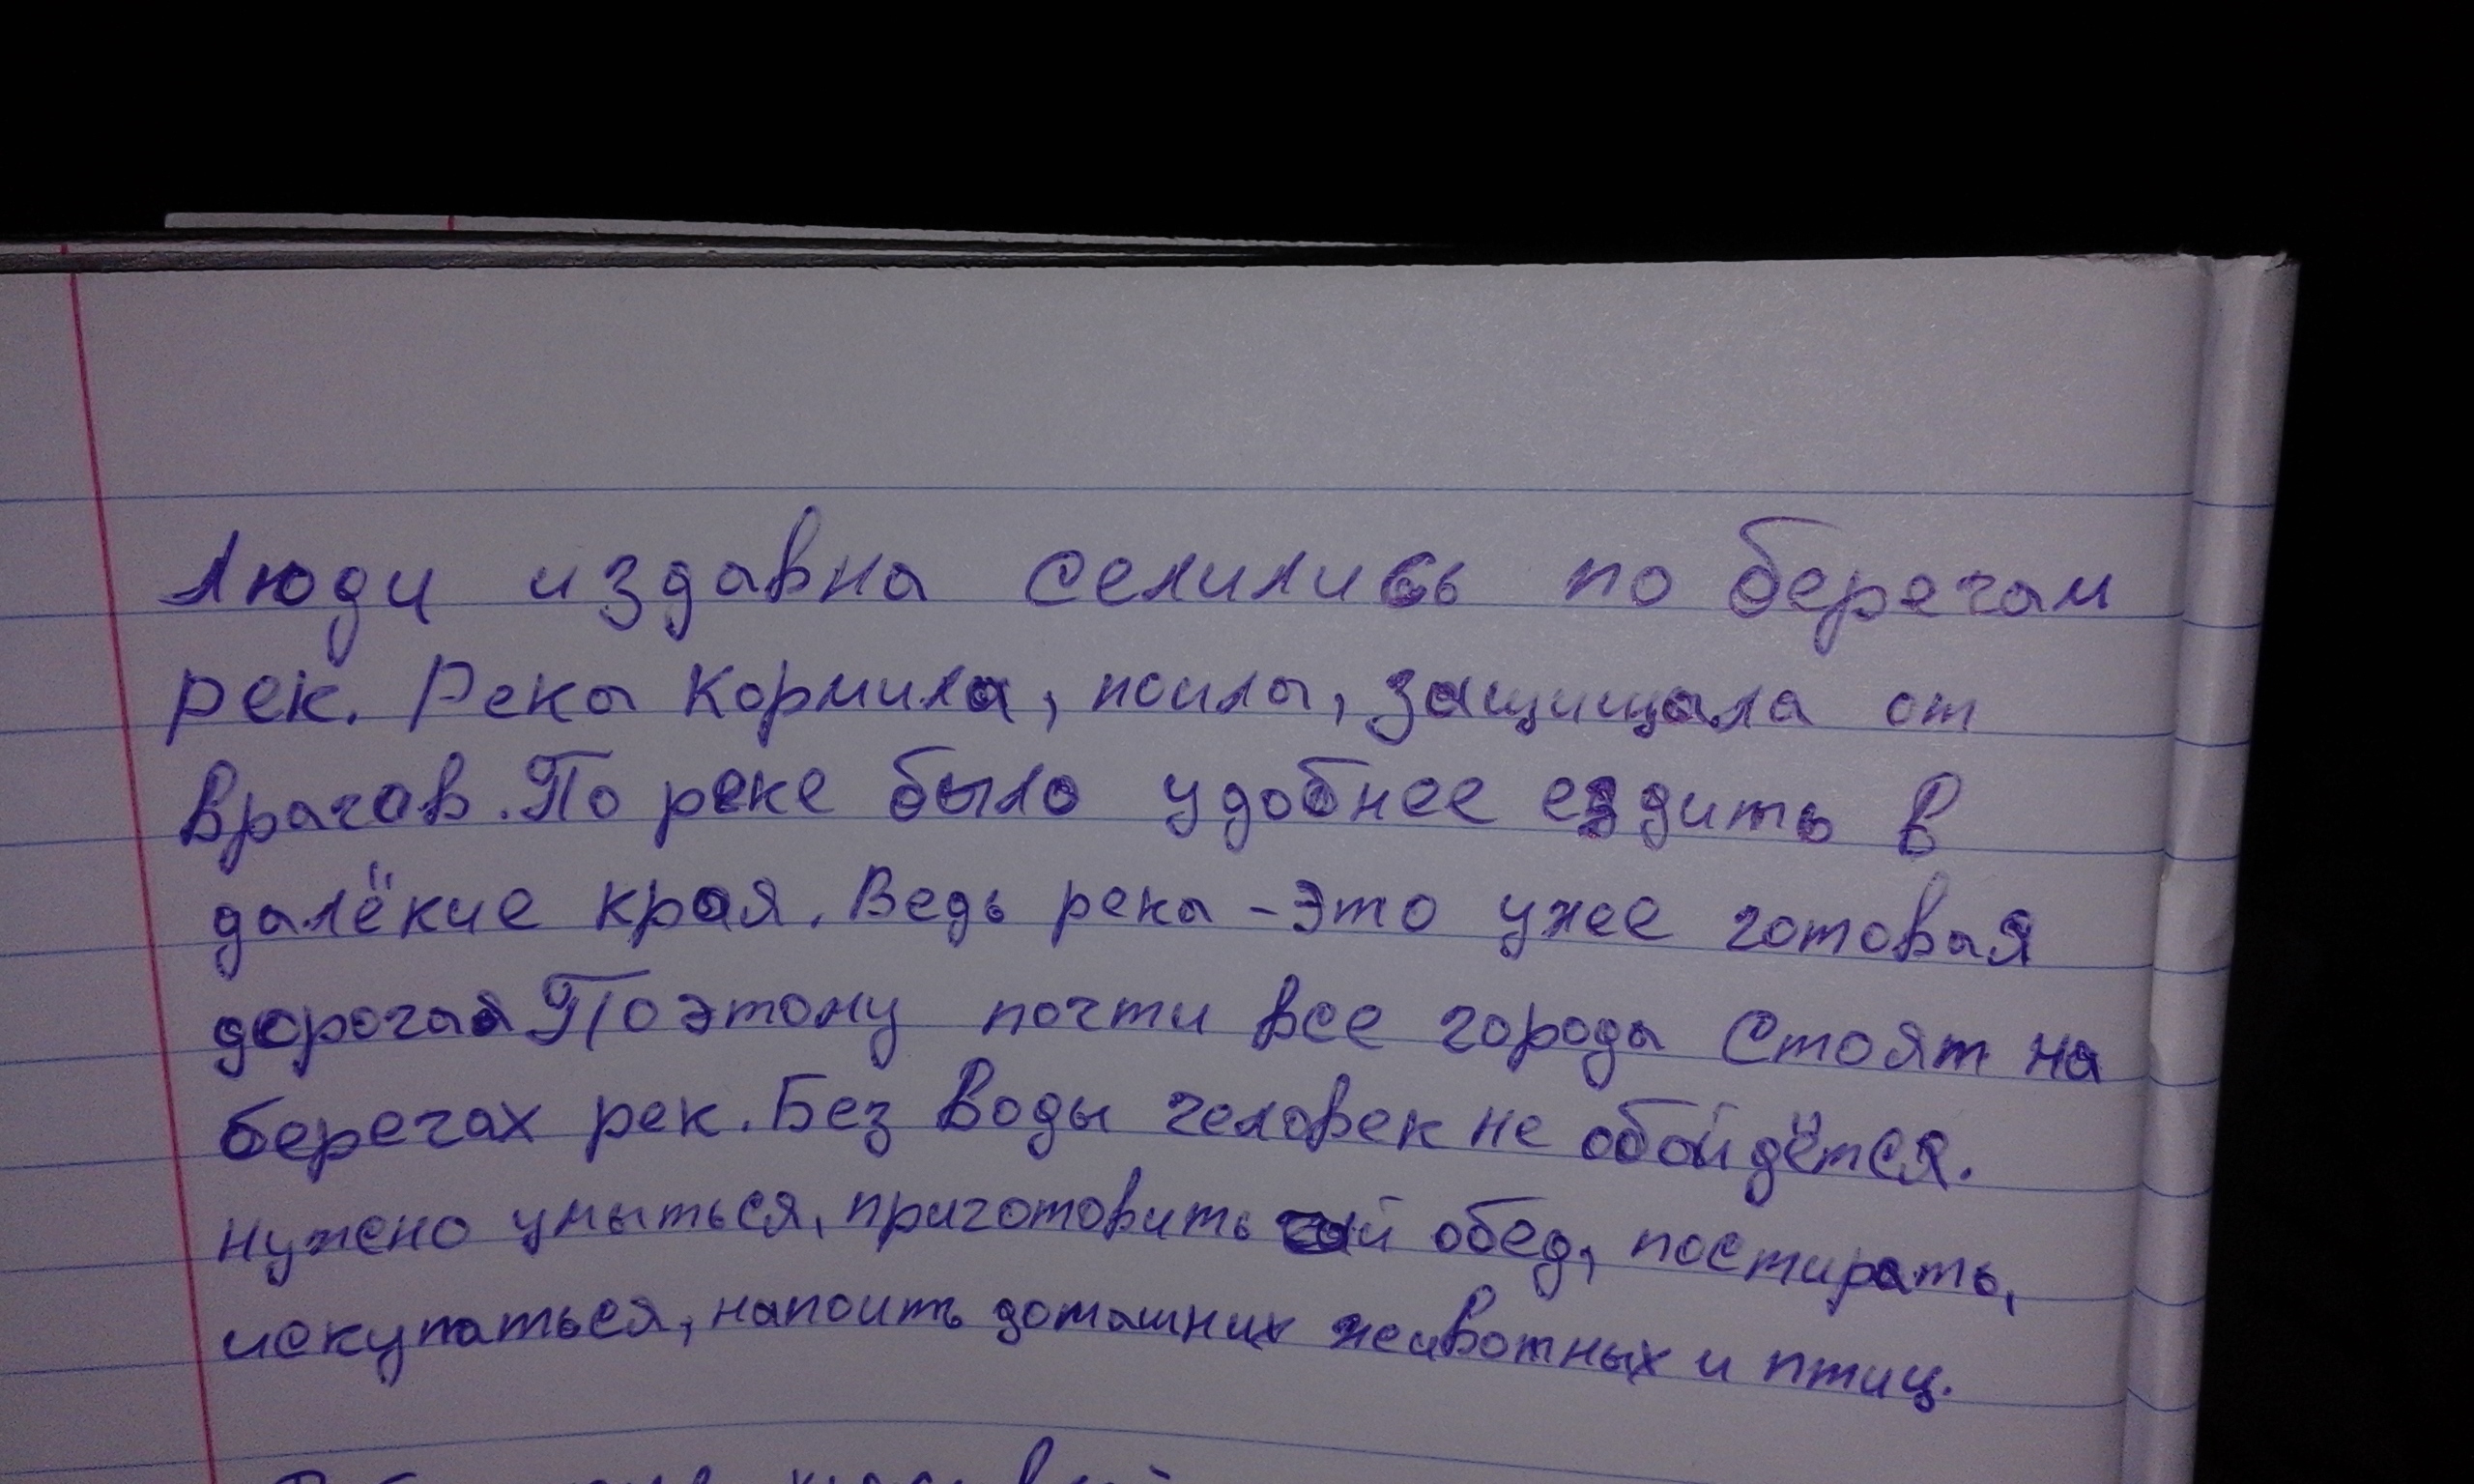 Люди издавна селились по берегам
рек. Река кормила, поила, защищала от
врагов. По реке было удобнее ездить в
далёкие края. Ведь река - это уже готовая
дорога Поэтому почти все города стоят на
берегах рек. Без воды человек не обойдётся.
нужно умыться, приготовить обед, постирать,
искупаться, напоить домашних животных и птиц.